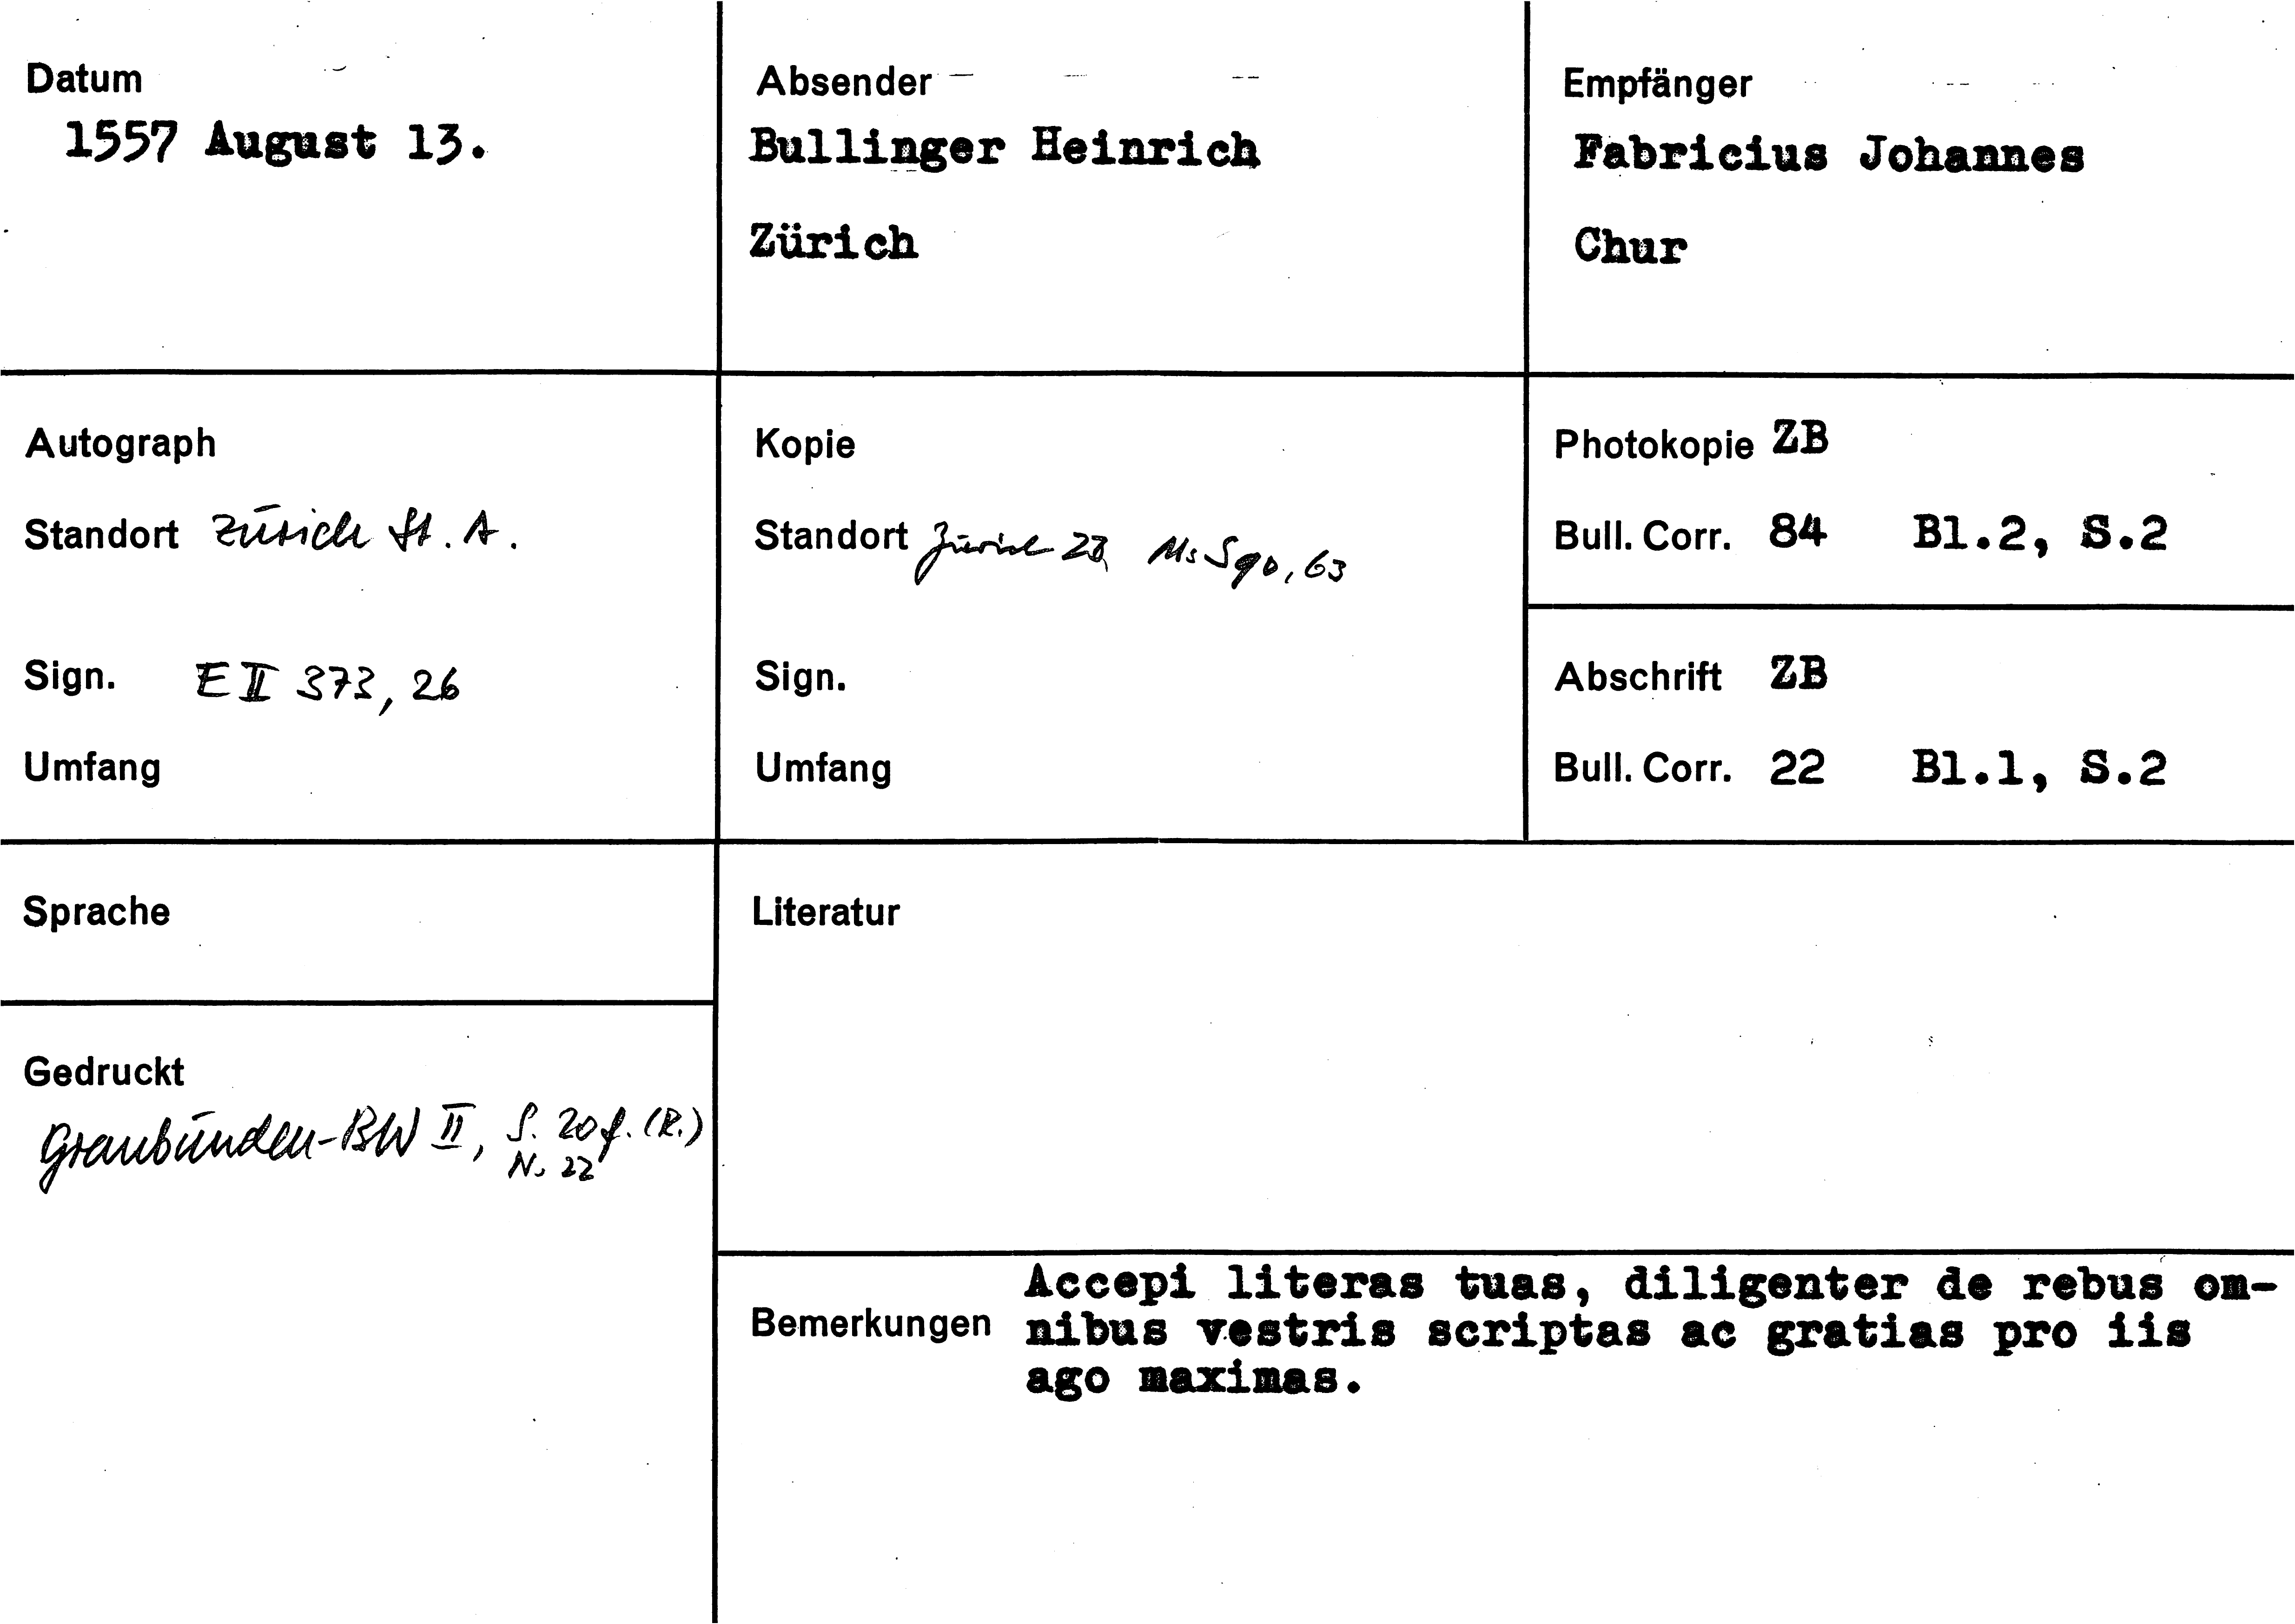 Datum
1557 August 13.
Absender
Bullinger Heinrich
Zürich
Empfänger
Fabricius Johannes
Chur
Autograph
Standort Zürich St. A.
Sign. E II 373, 26
Umfang
Kopie
Standort Zürich ZB Ms S 90, 63
Sign.
Umfang
Photokopie ZB
Bull. Corr. 84 Bl.2, S.2
Abschrift ZB
Bull. Corr. 22 Bl.1, S.2
Sprache
Gedruckt
Graubünden-BW II, S. 20f. (R.)
N. 22
Literatur
Bemerkungen
Accepi literas tuas, diligenter de rebus om-
nibus vestris scriptas ac gratias pro iis
ago maximas.